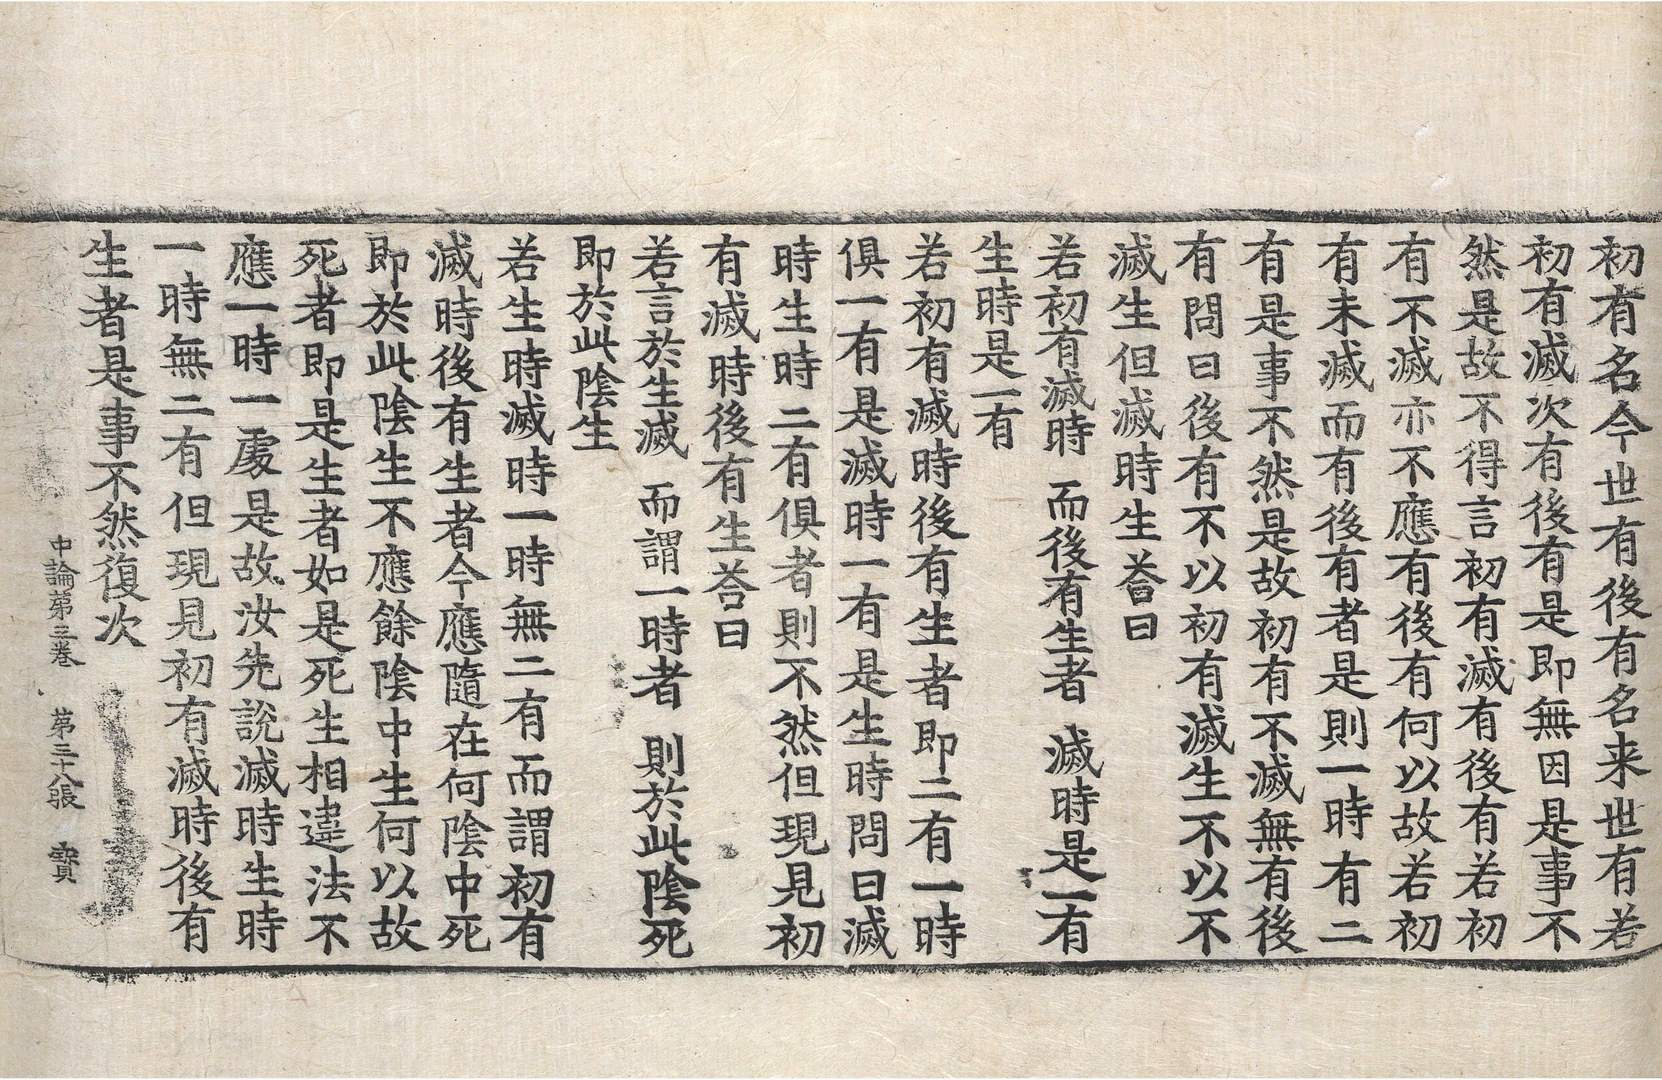 初有名今世有後有名来世有若
初有滅次有後有是即無因是事不
然是故不得言初有滅有後有若初
有不滅亦不應有後有何以故若初
有未滅而有後有者是則一時有二
有是事不然是故初有不滅無有後
有問曰後有不以初有滅生不以不
滅生但滅時生荅曰
若初有滅時 而後有生者 滅時是一有
生時是一有
若初有滅時後有生者即二有一時
俱一有是滅時一有是生時問曰滅
時生時二有俱者則不然但現見初
有滅時後有生荅曰
若言於生滅 而謂一時者 則於此陰死
即於此陰生
若生時滅時一時無二有而謂初有
滅時後有生者今應隨在何陰中死
即於此陰生不應餘陰中生何以故
死者即是生者如是死生相違法不
應一時一處是故汝先說滅時生時
一時無二有但現見初有滅時後有
生者是事不然復次
中論苐三卷 苐三十八張 寶